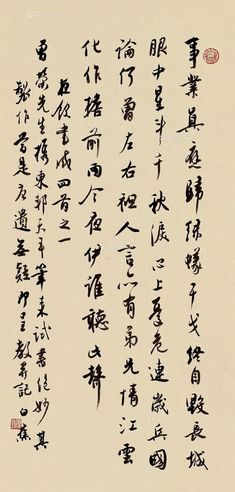 事業真應歸綠蟻干戈終自毀長城
眼中星斗千秋淚心上孱危連歲兵國
論何曾左右袒人言亦有弟兄情江雲
化作檐前雨今夜伊誰聽此聲
夜飲書成四首之一
曾榮先生攜東邦天平筆來試書絕妙其
製作當是唐遺無疑即呈教并記 白蕉